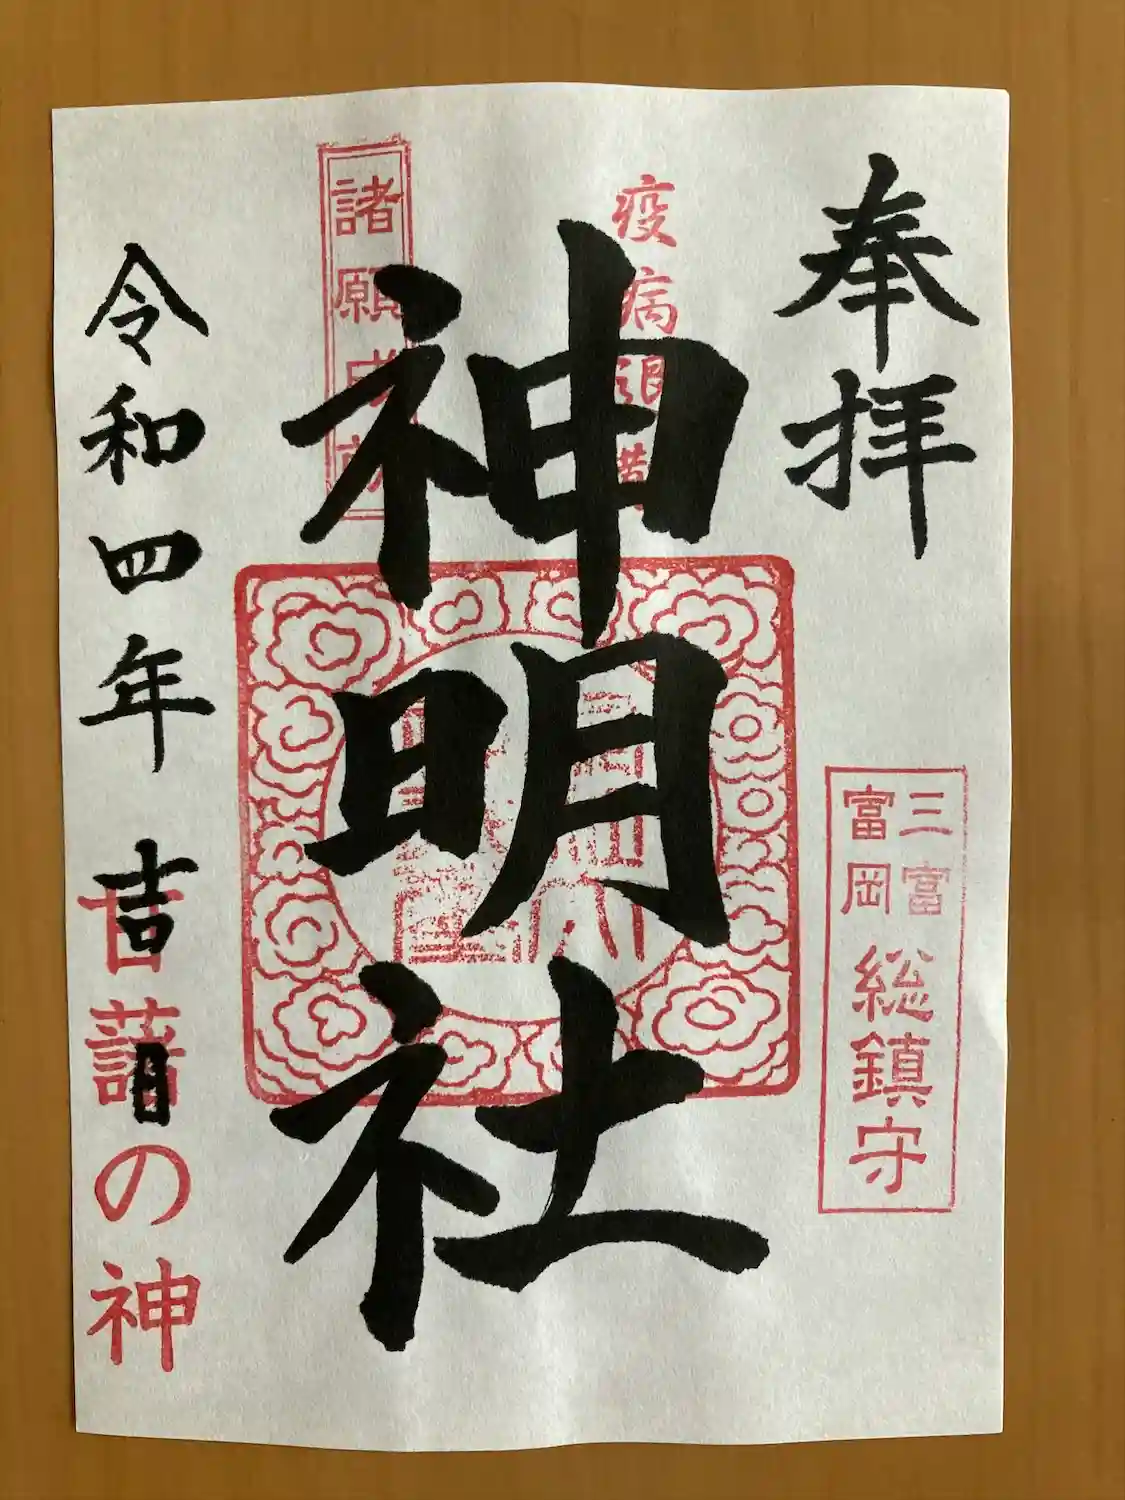 奉拝
三富
富岡
総鎮守
疫病退散
神明社
諸願成就
令和四年 吉日
甘藷の神